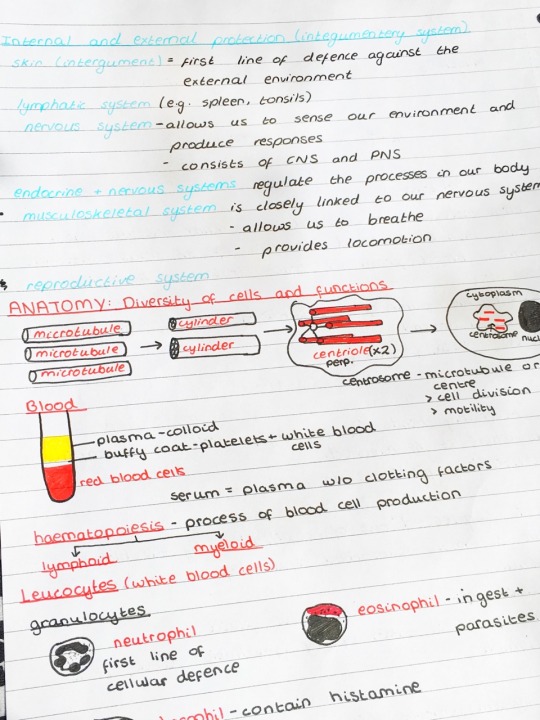 Internal and external protection (integumentery system).
skin (intergument) = first line of defence against the
external environment
lymphatic system (e.g. spleen, tonsils)
nervous system - allows us to sense our environment and
produce responses
- consists of CNS and PNS
endocrine + nervous systems regulate the processes in our body
musculoskeletal system is closely linked to our nervous system
- allows us to breathe
- provides locomotion
reproductive system
ANATOMY: Diversity of cells and functions
microtubule
microtubule
microtubule
cylinder
cylinder
centriole (x2)
perp.
cytoplasm
centrosome
centrosome - microtubule or
centre
> cell division
> motility
Blood
plasma - colloid
buffy coat - platelets + white blood
cells
red blood cells
serum = plasma w/o clotting factors
haematopoiesis - process of blood cell production
lymphoid
myeloid
Leucocytes (white blood cells)
granulocytes
neutrophil
first line of
cellular defence
eosinophil - ingest +
parasites
- contain histamine